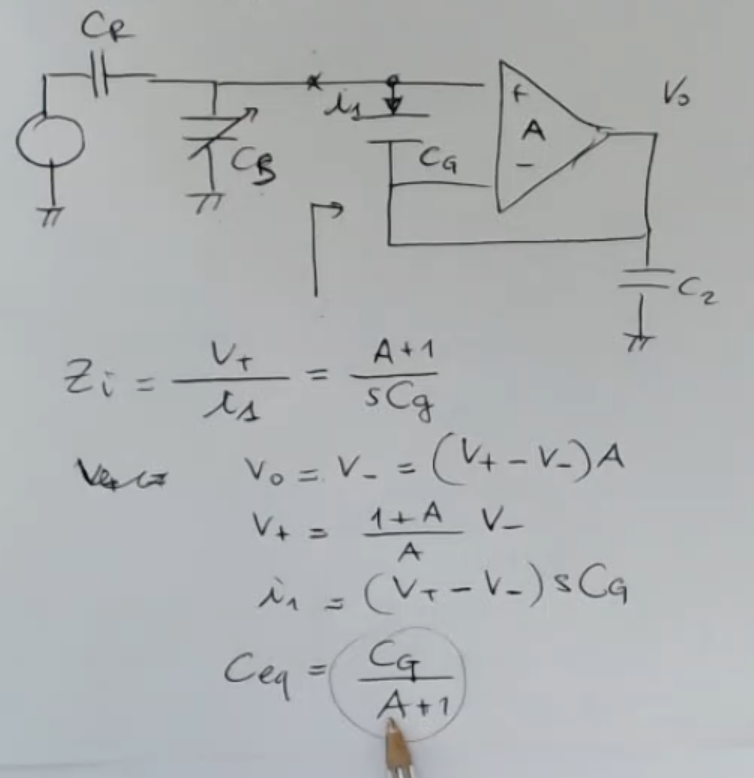 C_R
V_o
+
A
-
i_1
C_B
C_G
C_2
Z_i = V_+ / i_1 = A+1 / sC_g
V_o = V_- = (V_+ - V_-)A
V_+ = 1+A / A V_-
i_1 = (V_+ - V_-) sC_G
C_eq = C_G / A+1